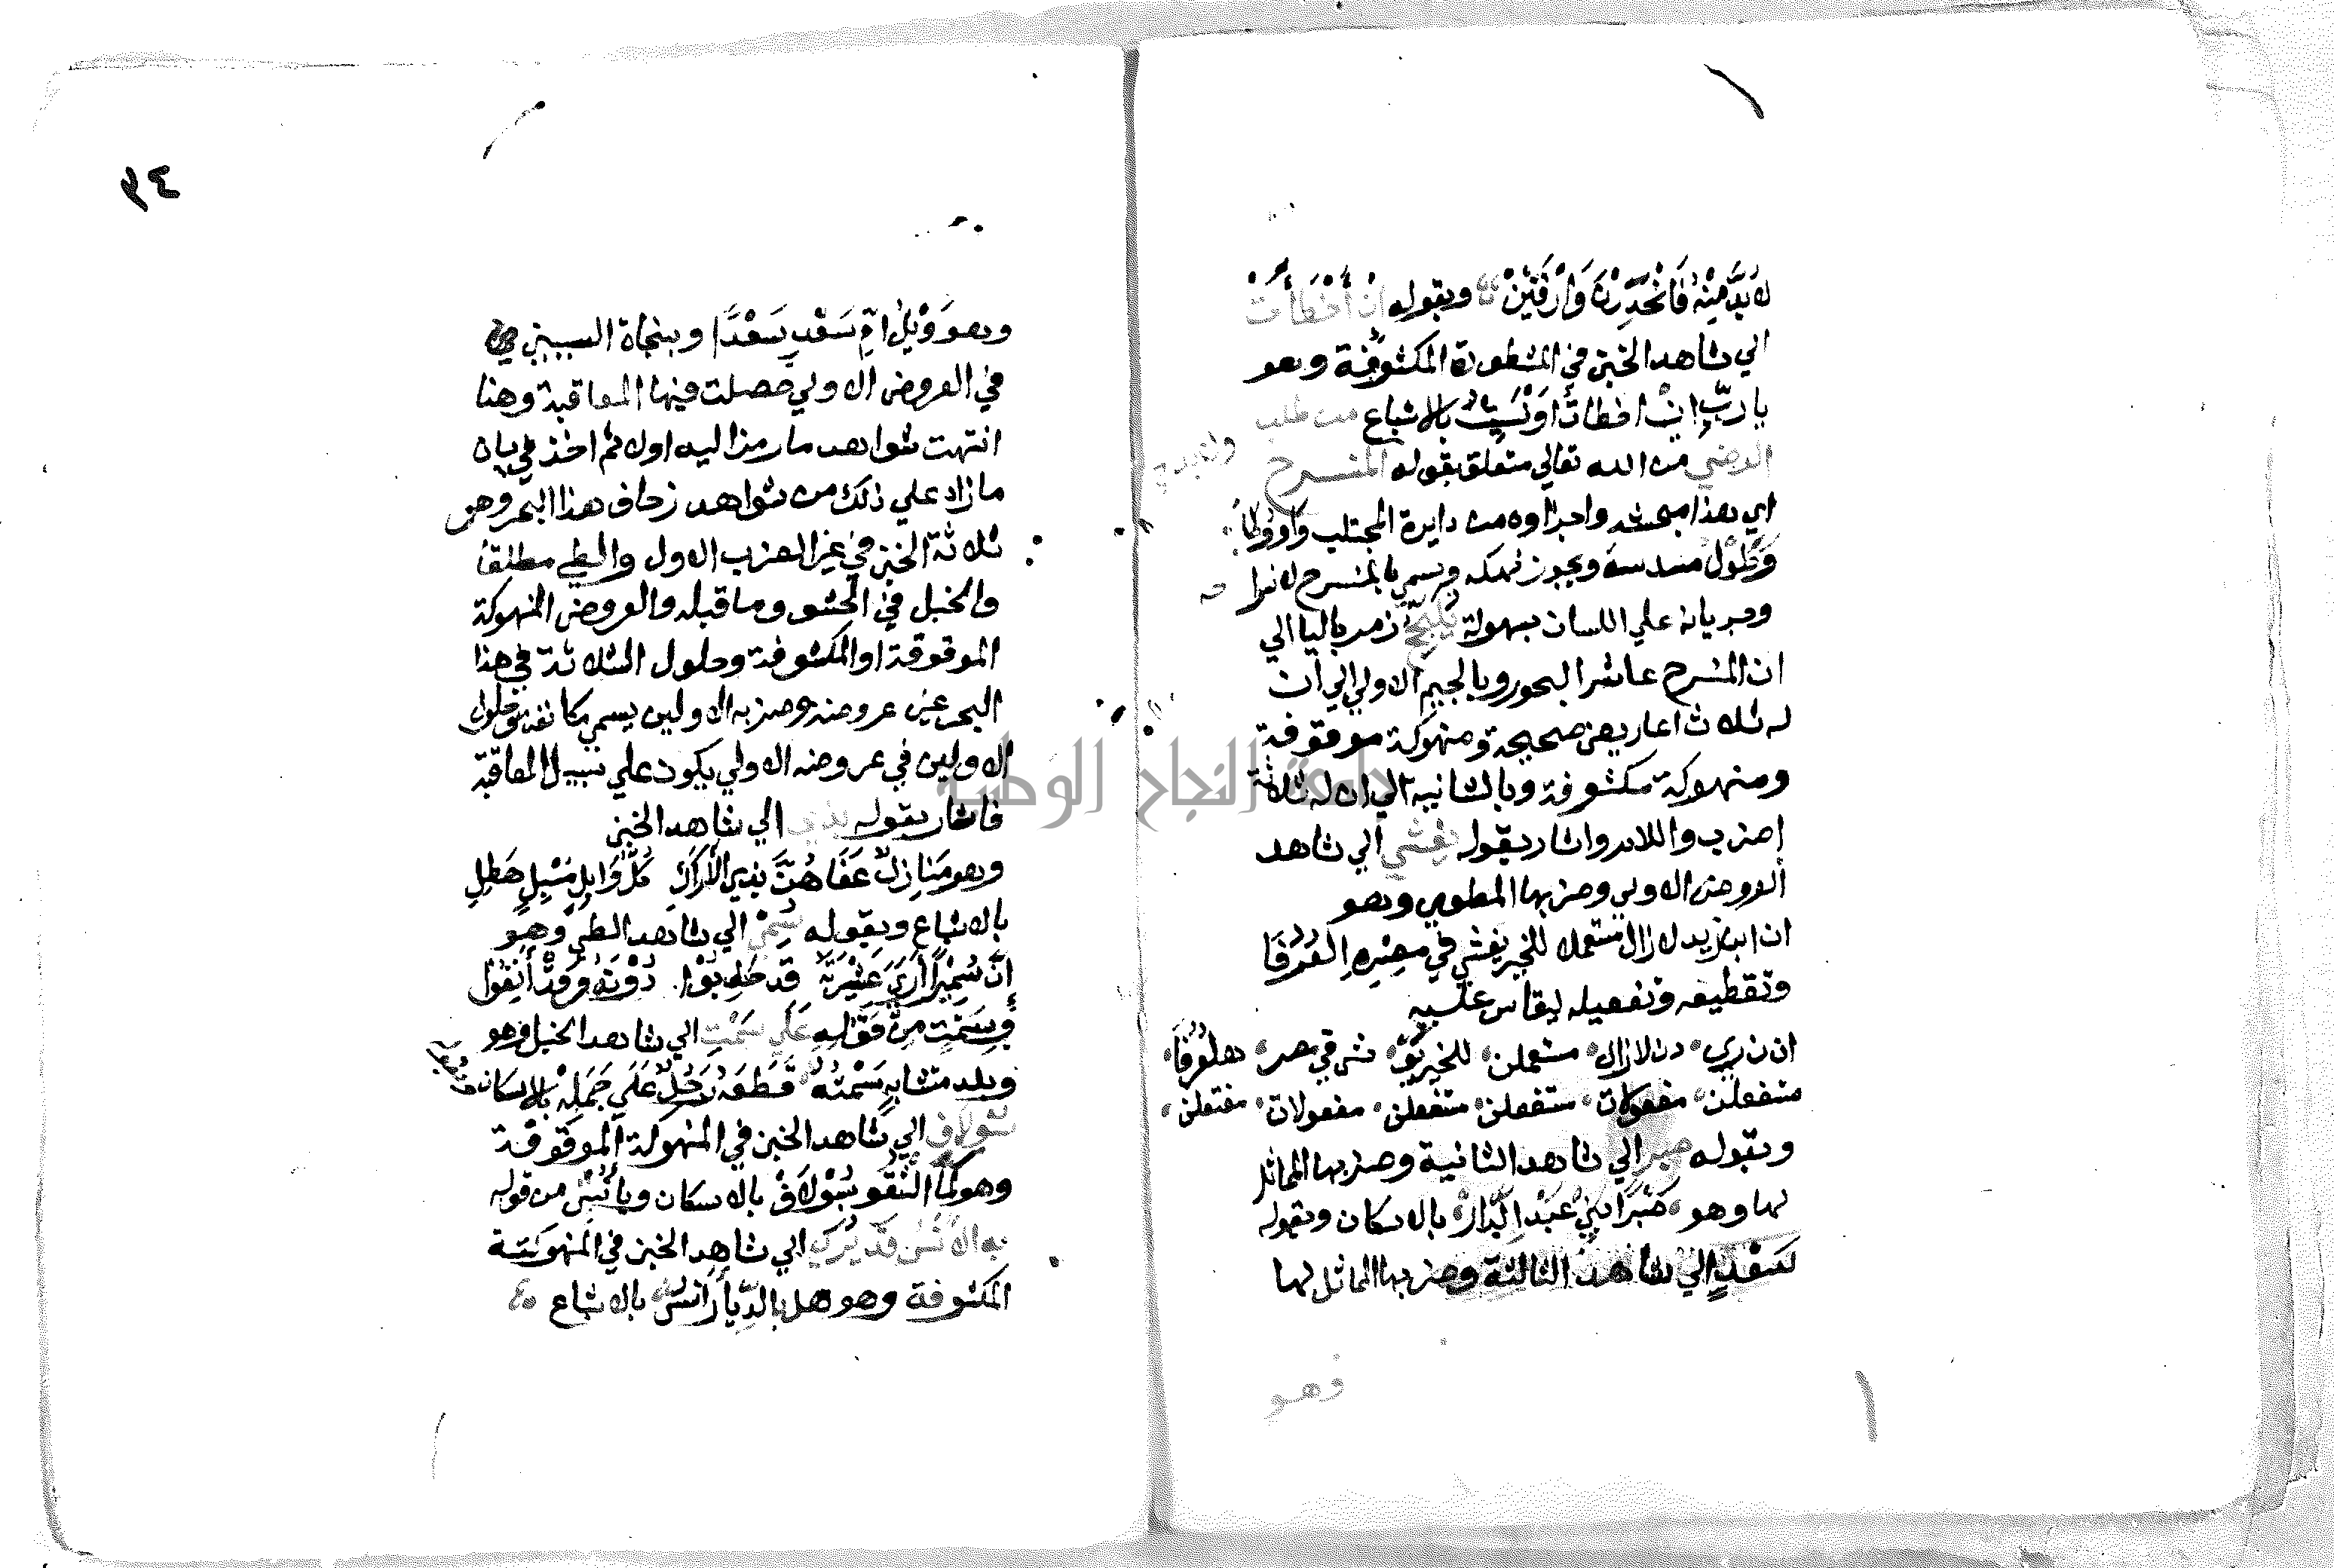 لا بد منه فانحدرن وارقين وبقوله ان أخطأت
الي شاهد الخبن في المشطورة المكشوفة وهو
يا رب ان اخطات او نسيت بالاشباع من طلب
الرضي من الله تعالي متعلق بقوله المنسرح
اي هذا مبحثه واجزاوه من دايرة المجتلب
مسدسة ويجوز نهكه ويسمي بالمنسرح لانسرا
وجريانه علي اللسان بسهولة زمر باليا الي
ان المنسرح عاشر البحور وبالجيم الاولي الي ان
له ثلاث اعاريض صحيحة ومنهوكة موقوفة
ومنهوكة مكشوفة وبالثانية الي ان له ثلاثة
اضرب واللام واشار بقوله يفشي الي شاهد
العروض الاولي وضربها المطوي وهو
ان ابن زيد لا زال مستعملا للخير يفشي في مصره العرفا
وتقطيعه وتفعيله ليقاس عليه
ان نبن زي دن لا زال مستعملن للخير يف شي في مصر هلعرفا
مستفعلن مفعولات مستفعلن مستفعلن مفعولات مفتعلن
وبقوله صبر الي شاهد الثانية وضربها المماثل
لها وهو صبرا بني عبد الدار بالاسكان وبقوله
سعد الي شاهد الثالثة وضربها المماثل لها
وهو
٣٤
وهو ويل ام سعد سعدا وبنجاة السببين
في العروض الاولي حصلت فيها المعاقبة وهنا
انتهت شواهد ما رمز اليه اولا ثم اخذ في بيان
ما زاد علي ذلك من شواهد زحاف هذا البحر وهي
ثلاثة الخبن في غير الضرب الاول والطي مطلقا
والخبل في الحشو وما قبله والعروض المنهوكة
الموقوفة او المكشوفة وحلول الثلاثة في هذا
البحر غير عروضه وضربه الاولين يسمي مكانفة وحلول
الاولين في عروضه الاولي يكون علي سبيل المعاقبة
فاشار بقوله بذي الي شاهد الخبن
وهو منازل عفاهن بذي الاراك كل وابل مسبل هطل
بالاشباع وبقوله سمير الي شاهد الطي وهو
ان سميرا اري عشيرته قد حدبوا دونه وقد أنفوا
وسمت من قوله علي سمت الي شاهد الخبل وهو
وبلد متشابه سمته قطعه رجل علي جمله بالاسكان
سولاف الي شاهد الخبن في المنهوكة الموقوفة
وهو لما التقوا بسولاف بالاسكان وبانس من قوله
به الانس قد يرى الي شاهد الخبن في المنهوكة
المكشوفة وهو هل بالديار انس بالاشباع
جامعة النجاح الوطنية